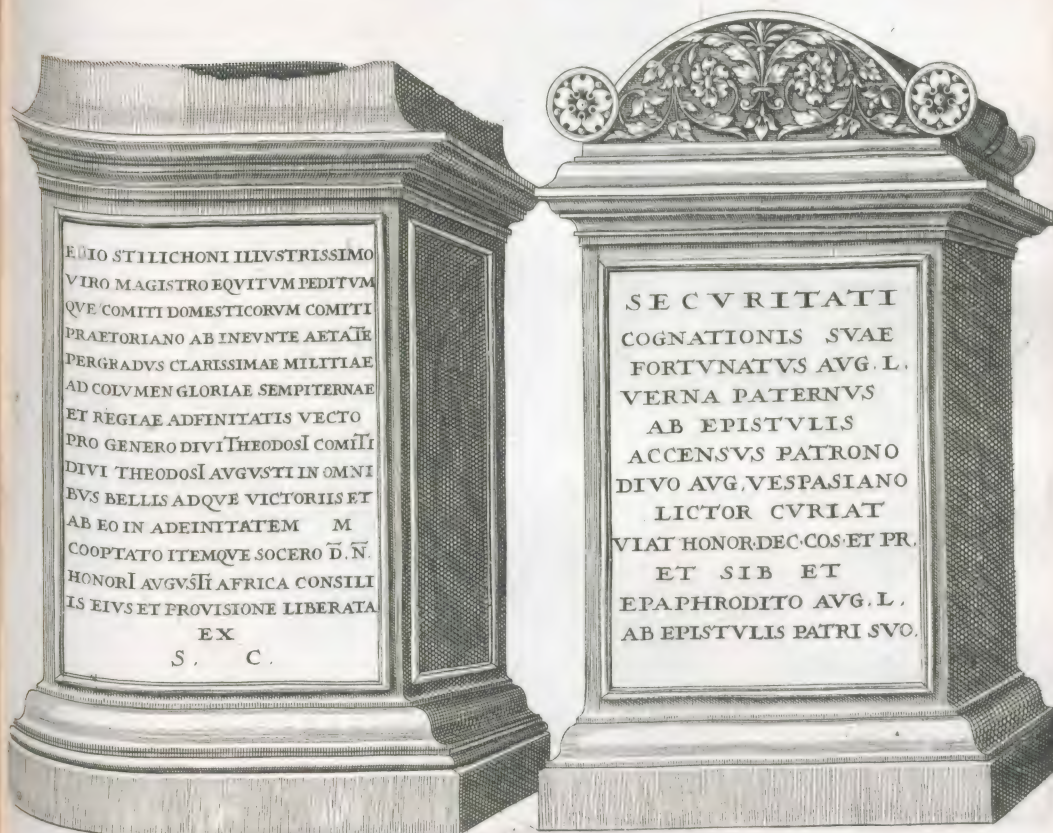 E IO STILICHONI ILLVSTRISSIMO
VIRO MAGISTRO EQVITVM PEDITVM
QVE COMITI DOMESTICORVM COMITI
PRAETORIANO AB INEVNTE AETATE
PERGRADVS CLARISSIMAE MILITIAE
AD COLVMEN GLORIAE SEMPITERNAE
ET REGIAE ADFINITATIS VECTO
PRO GENERO DIVI THEODOSI COMITI
DIVI THEODOSI AVGVSTI IN OMNI
BVS BELLIS ADQVE VICTORIIS ET
AB EO IN ADEINITATEM M
COOPTATO ITEMQVE SOCERO D̅. N̅.
HONORI AVGVSTI AFRICA CONSILI
IS EIVS ET PROVISIONE LIBERATA
EX
S. C.
SECVRITATI
COGNATIONIS SVAE
FORTVNATVS AVG. L.
VERNA PATERNVS
AB EPISTVLIS
ACCENSVS PATRONO
DIVO AVG. VESPASIANO
LICTOR CVRIAT
VIAT HONOR·DEC·COS·ET PR.
ET SIB ET
EPAPHRODITO AVG. L.
AB EPISTVLIS PATRI SVO.